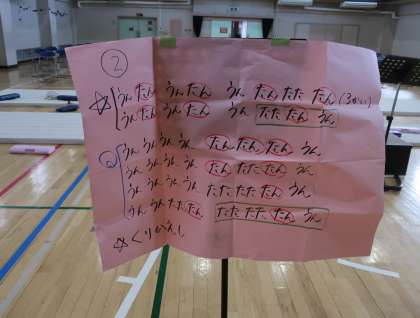 ②
☆ うん たん うん たん うん たん たた たん (3かい)
うん たん うん たん うん たん たた うん
うん うん うん うん たん たん たん うん
うん うん うん うん たん たた たん うん
うん うん うん うん たた たた たん うん
うん うん たた たん たた たた たん うん
☆くりかえし